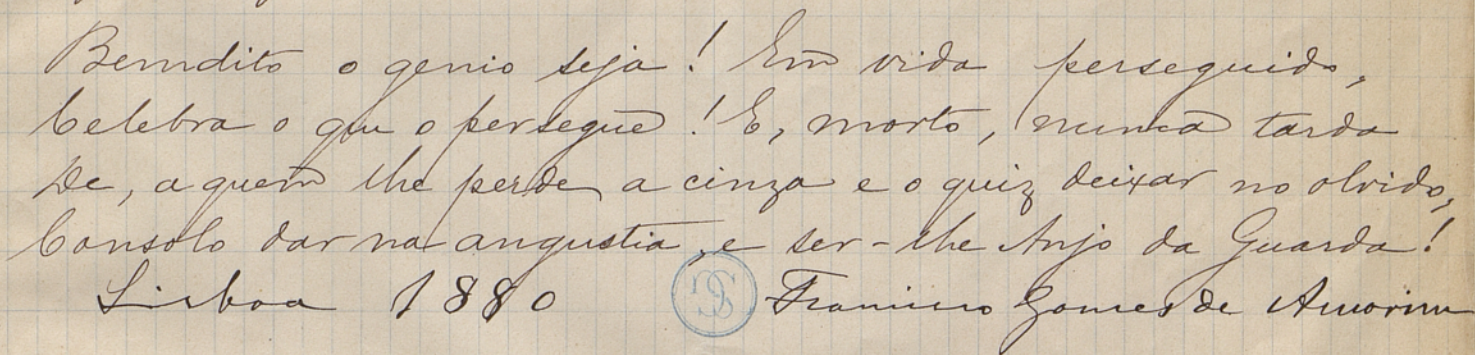 Bemdito o genio seja! Em vida perseguido,
Celebra o que o persegue! E, morto, nunca tarda
De, a quem lhe perde a cinza e o quiz deixar no olvido,
Consolo dar na angustia, e ser-lhe Anjo da Guarda!
Lisboa 1880 Francisco Gomes de Amorim